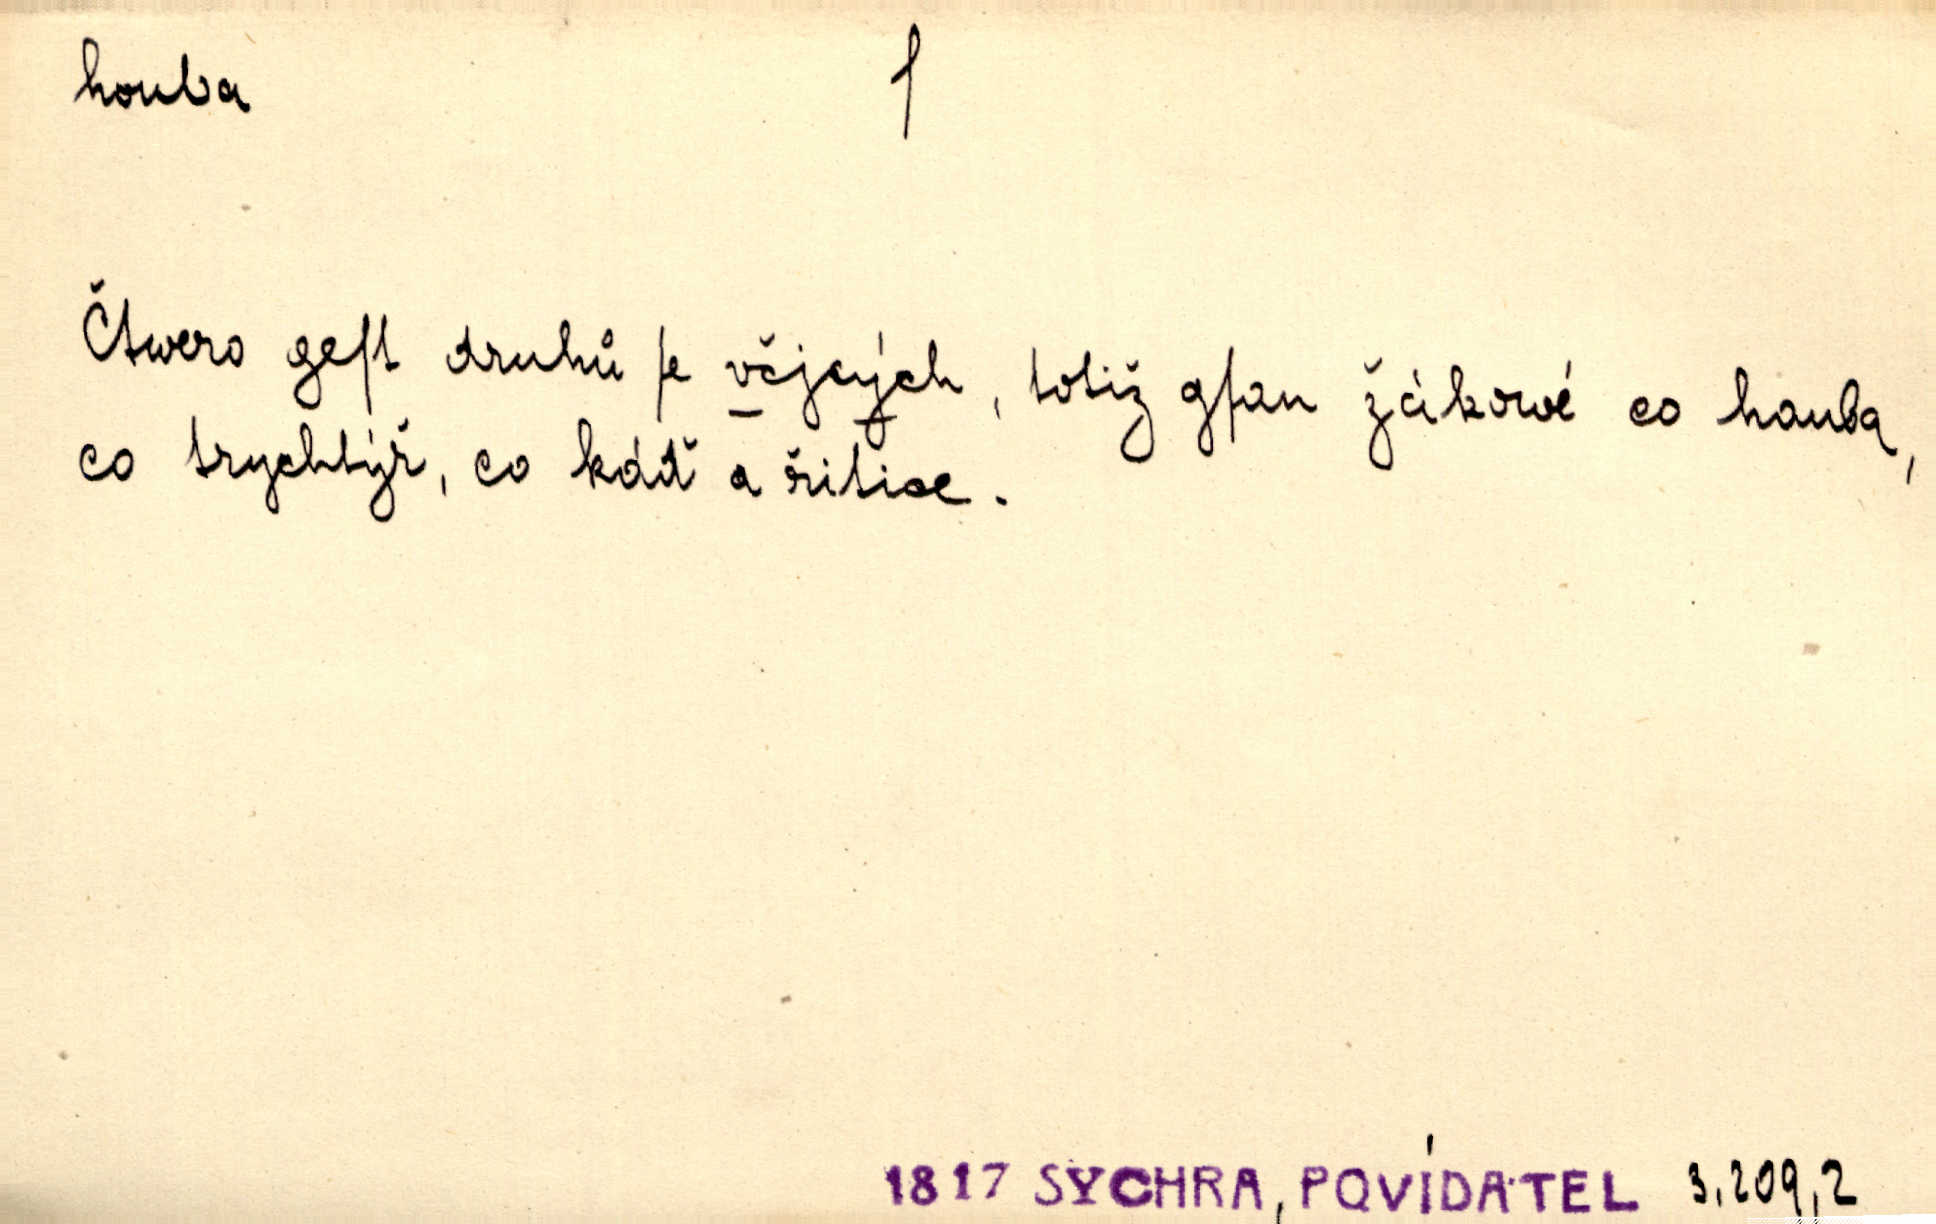 houba ſ
Čtwero geſt druhů ſe včjcých, totiž gſau žákowé co hauba,
co trychtýř, co káď a řitice.
1817 SYCHRA, POVÍDATEL 3,209,2